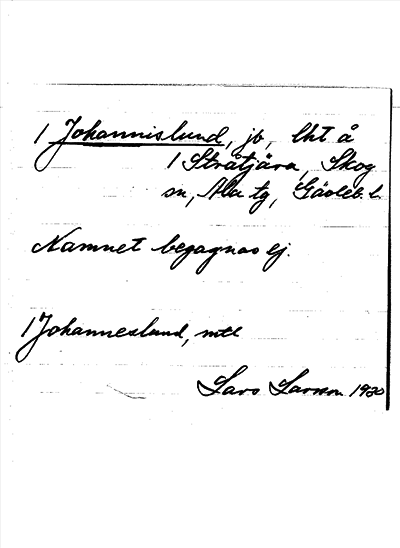 1 Johannislund, jb, lht å
1 Stråtjära, Skog
sn, Ala tg, Gävleb. l.
Namnet begagnas ej.
1 Johanneslund, mtl
Lars Larsson 1920